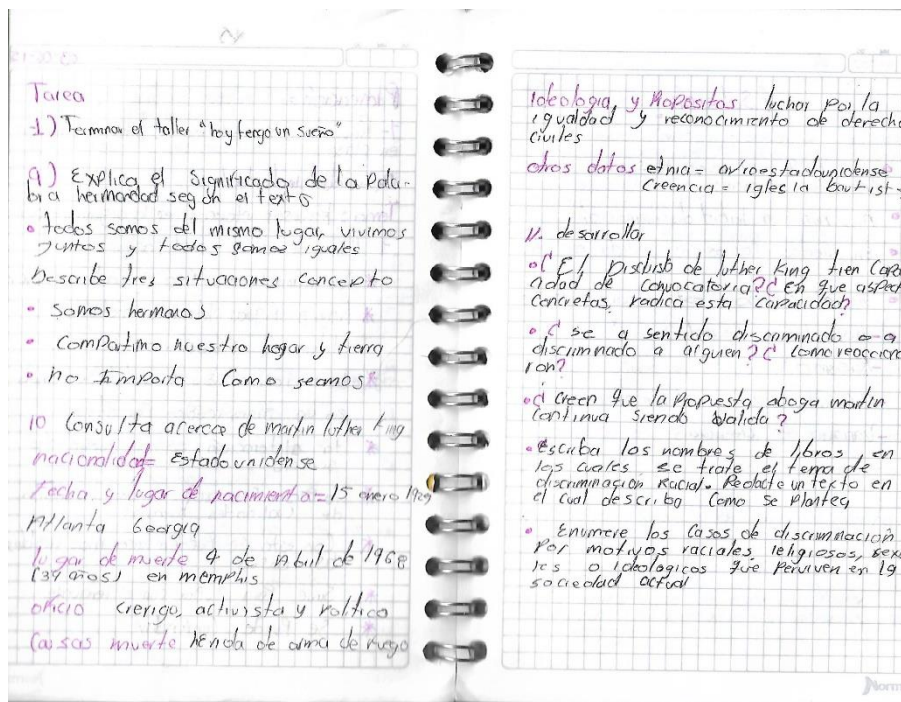 Tarea
1) Terminar el taller "hoy tengo un sueño"
9) Explica el significado de la pala-
bra hermandad según el texto
• todos somos del mismo lugar vivimos
juntos y todos somos iguales
Describe tres situaciones concepto
• Somos hermanos
• Compartimo nuestro hogar y tierra
• no importa como seamos
10 Consulta acerca de martin luther king
nacionalidad = Estadounidense
fecha y lugar de nacimiento = 15 enero 1929
Atlanta Georgia
lugar de muerte 4 de Abril de 1968
(39 años) en memphis
oficio clerigo, activista y politico
Causas muerte herida de arma de fuego
Ideologia y Propositos luchar por la
igualdad y reconocimiento de derecho
civiles
otros datos etnia = afroestadounidense
creencia = iglesia bautist
11. desarrollar
• ¿El Discurso de luther King tien capa
cidad de convocatoria? ¿En que aspect
concretas radica esta capacidad?
• ¿se a sentido discriminado o a
discriminado a alguien? ¿como reacciona
ron?
• ¿creen que la propuesta aboga martin
continua siendo valida?
• escriba los nombres de libros, en
los cuales se trate el tema de
discriminacion Racial. Redacte un texto en
el cual describa como se plantea
• Enumere los casos de discriminación
por motivos raciales, religiosos, sexua
les o ideologicos que perviven en la
sociedad actual
Norm